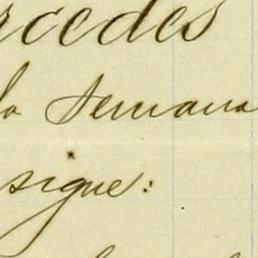 rcedes
la semana
sigue: